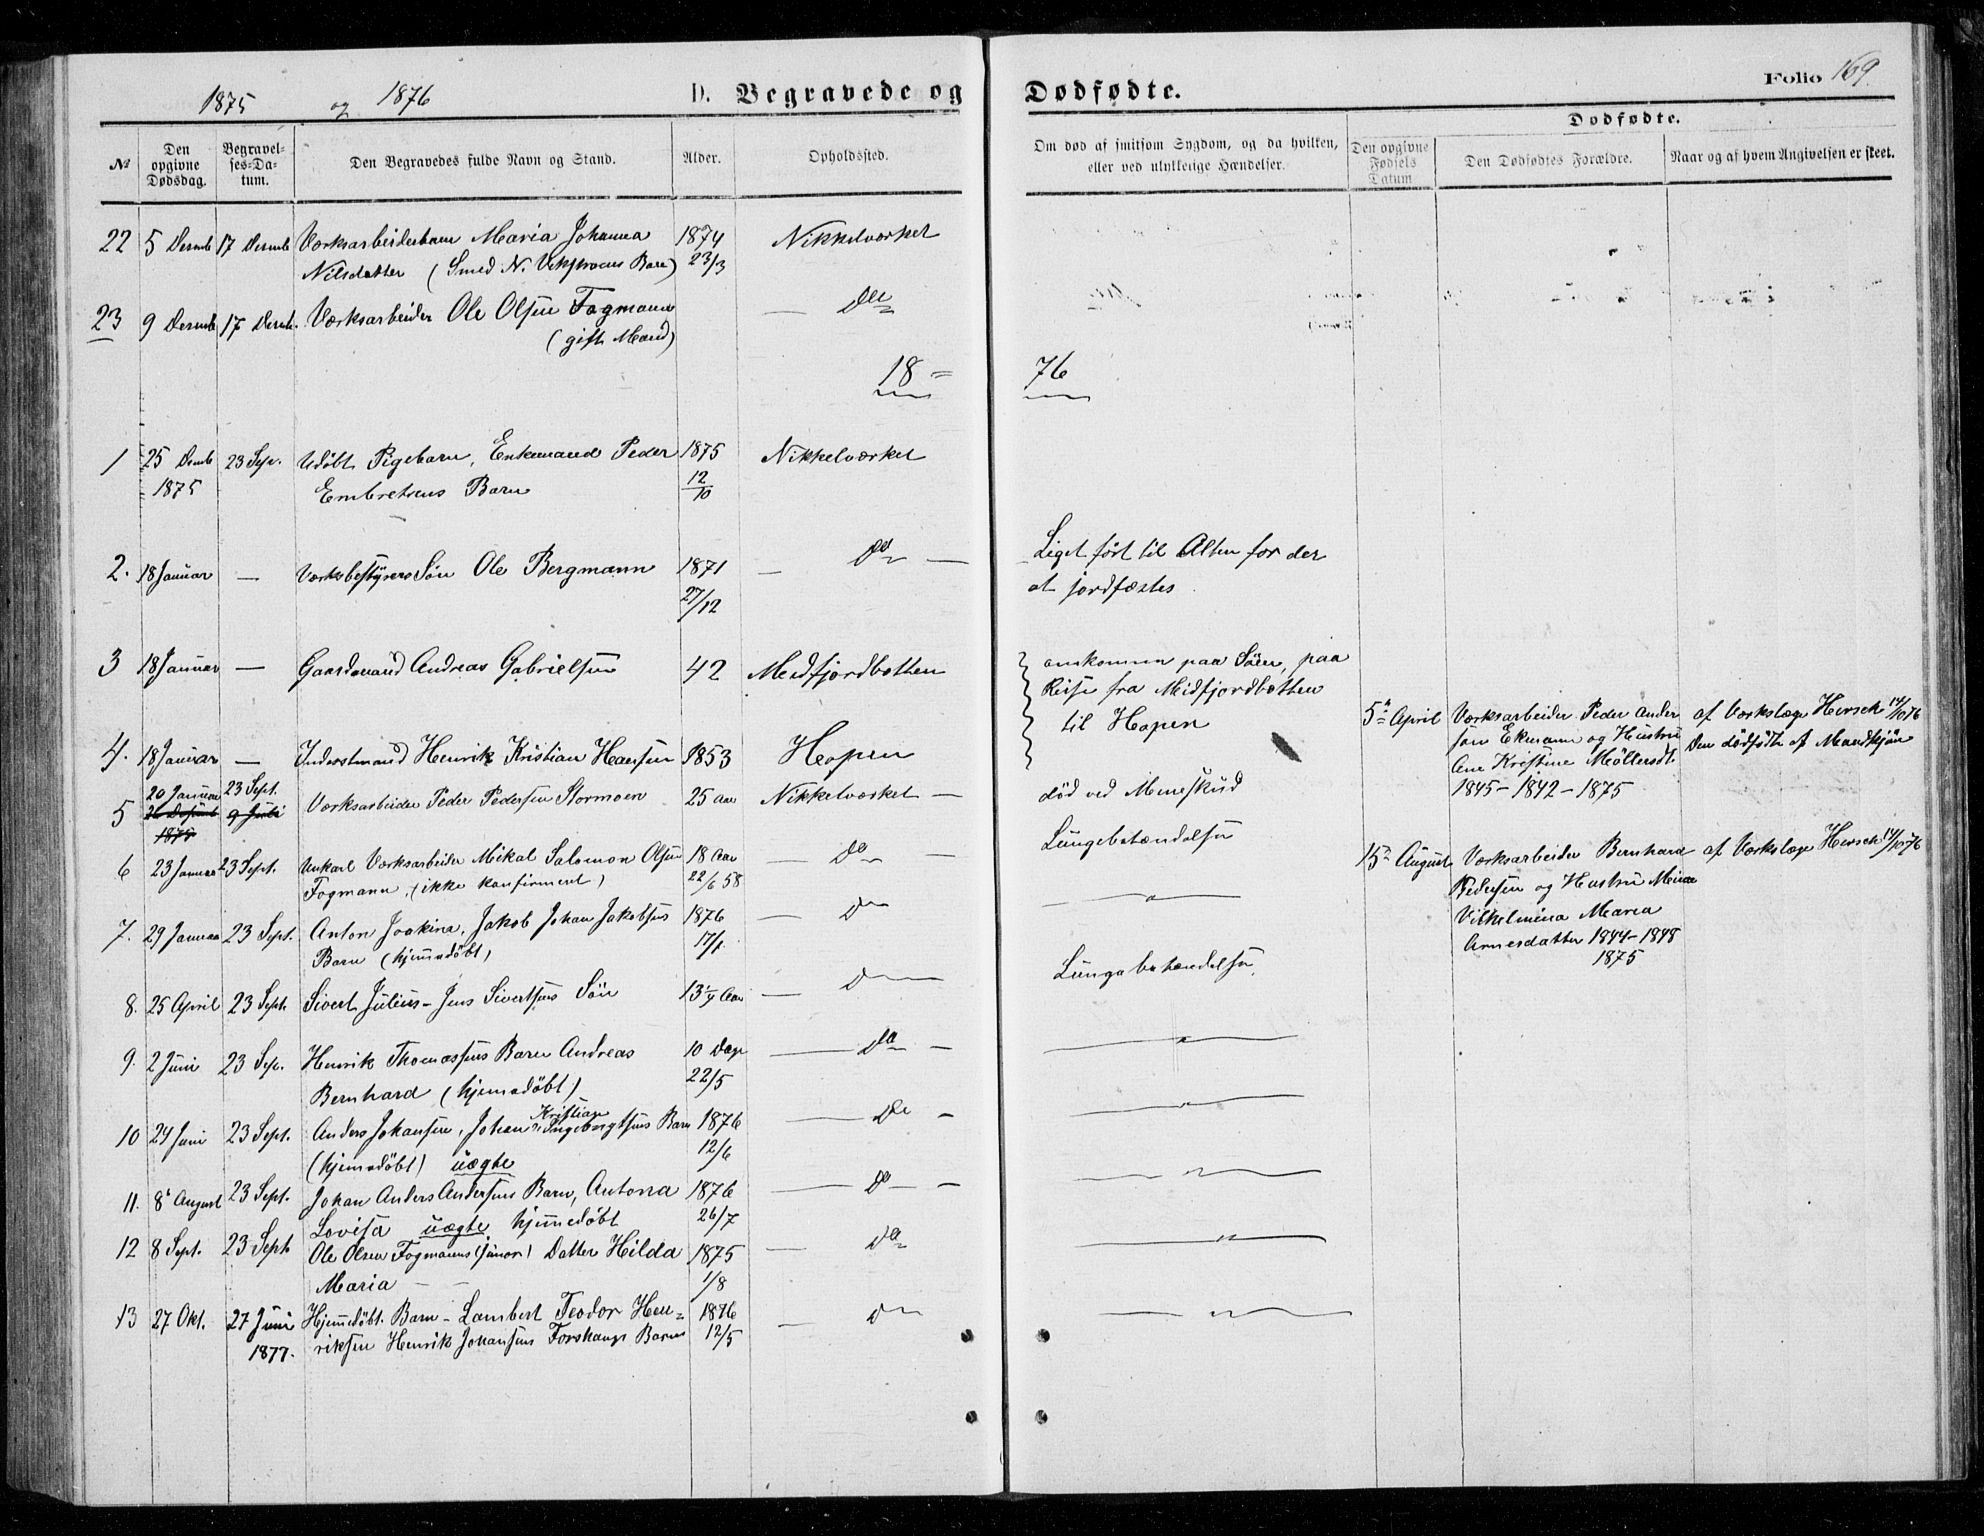 1875 og 1876
D. Begravede og
Dødfødte.
Folio 169.
№
Den opgivne Dødsdag.
Begravelses-Datum.
Den Begravedes fulde Navn og Stand.
Alder.
Opholdssted.
Om død af smitsom Sygdom, og da hvilken,
eller ved ulykkelige Hændelser.
Dødfødte.
Den opgivne Fødsels Datum
Den Dødfødtes Forældre.
Naar og af hvem Angivelsen er skeet.
22 5 Decmb 17 Decmb Værksarbeiderbarn Maria Johanna 1874 Nikkelværket
Nilsdatter (Smed N. Barn) 23/3
23 9 Decmb 17 Decmb. Værksarbeider Ole Olsen Fogmann — Do
(gift Mand)
18 = 76
1 25 Decmb 23 Sep. Udøbt Pigebarn, Enkemand Peder 1875 Nikkelværket
1875 Embretsens Barn 12/10
2. 18 Januar — Værksbestyrers Søn Ole Bergmann 1871 — Do — Liget ført til Alten for der
27/12 at jordfæstes
3 18 Januar — Gaardmand Andreas Gabrielsen 42 Medfjordbotten omkommen paa Søen, paa
Reise fra Meidfjordbotten
til Hopen
4. 18 Januar — Inderstmand Henrik Kristian Hansen 1853 Hopen
20 Januar 23 Sept.
5 26 Decmb 9 Juli Værksarbeider Peder Pedersen Stormoen 25 Aar Nikkelværket — død ved Mineskud
1875
6 23 Januar 23 Sept. Unkarl Værksarbeider Mikal Salomon Olsen 18 Aar — Do — Lungebetændelse
Fogmann, (ikke konfirmert) 22/6 58
7. 29 Januar 23 Sept. Anton Joakim, Jakob Johan Jakobsens 1876 — Do
Barn (hjemmedøbt) 17/1.
8. 25 April 23 Sept. Sivert Julius - Jens Sivertsens Søn 13 1/4 Aar — Do Lungebetændelse
9. 2 Juni 23 Sep. Henrik Thomassens Barn Andreas 10 Dage — Do —
Bernhard (hjemmedøbt) 22/5
Kristian
10 24 Juni 23 Sept. Anders Johansen, Johan Ingebrigtsens Barn 1876 — Do —
(hjemmedøbt) uægte 12/6
11. 8 August 23 Sept. Johan Anders Andersens Barn, Antona 1876 — Do —
Lovisa uægte hjemmedøbt 26/7
12 8 Sept. 23 Sept Ole Olsen Fogmanns (junor) Datter Hilda 1875 — Do
Maria — — 1/8
13 27 Okt. 27 Juni Hjemmedøbt Barn - Lambert Teodor Hen= 1876 — Do
1877. riksen Henrik Johansens Forshaugs Barn 12/5
5te April Værksarbeider Peder Ander af Værkslæge Hersch 14/10 76
sen Ekmann og Hustru Den dødfødte af Mandkjøn
Ane Kristine Møllersdt.
1845 - 1842 - 1875
15de August Værksarbeider Bernhard af Værkslæge Hersch 14/10 76
Pedersen og Hustru
Vilhelmina Maria
Arnesdatter 1844 - 1848
1875